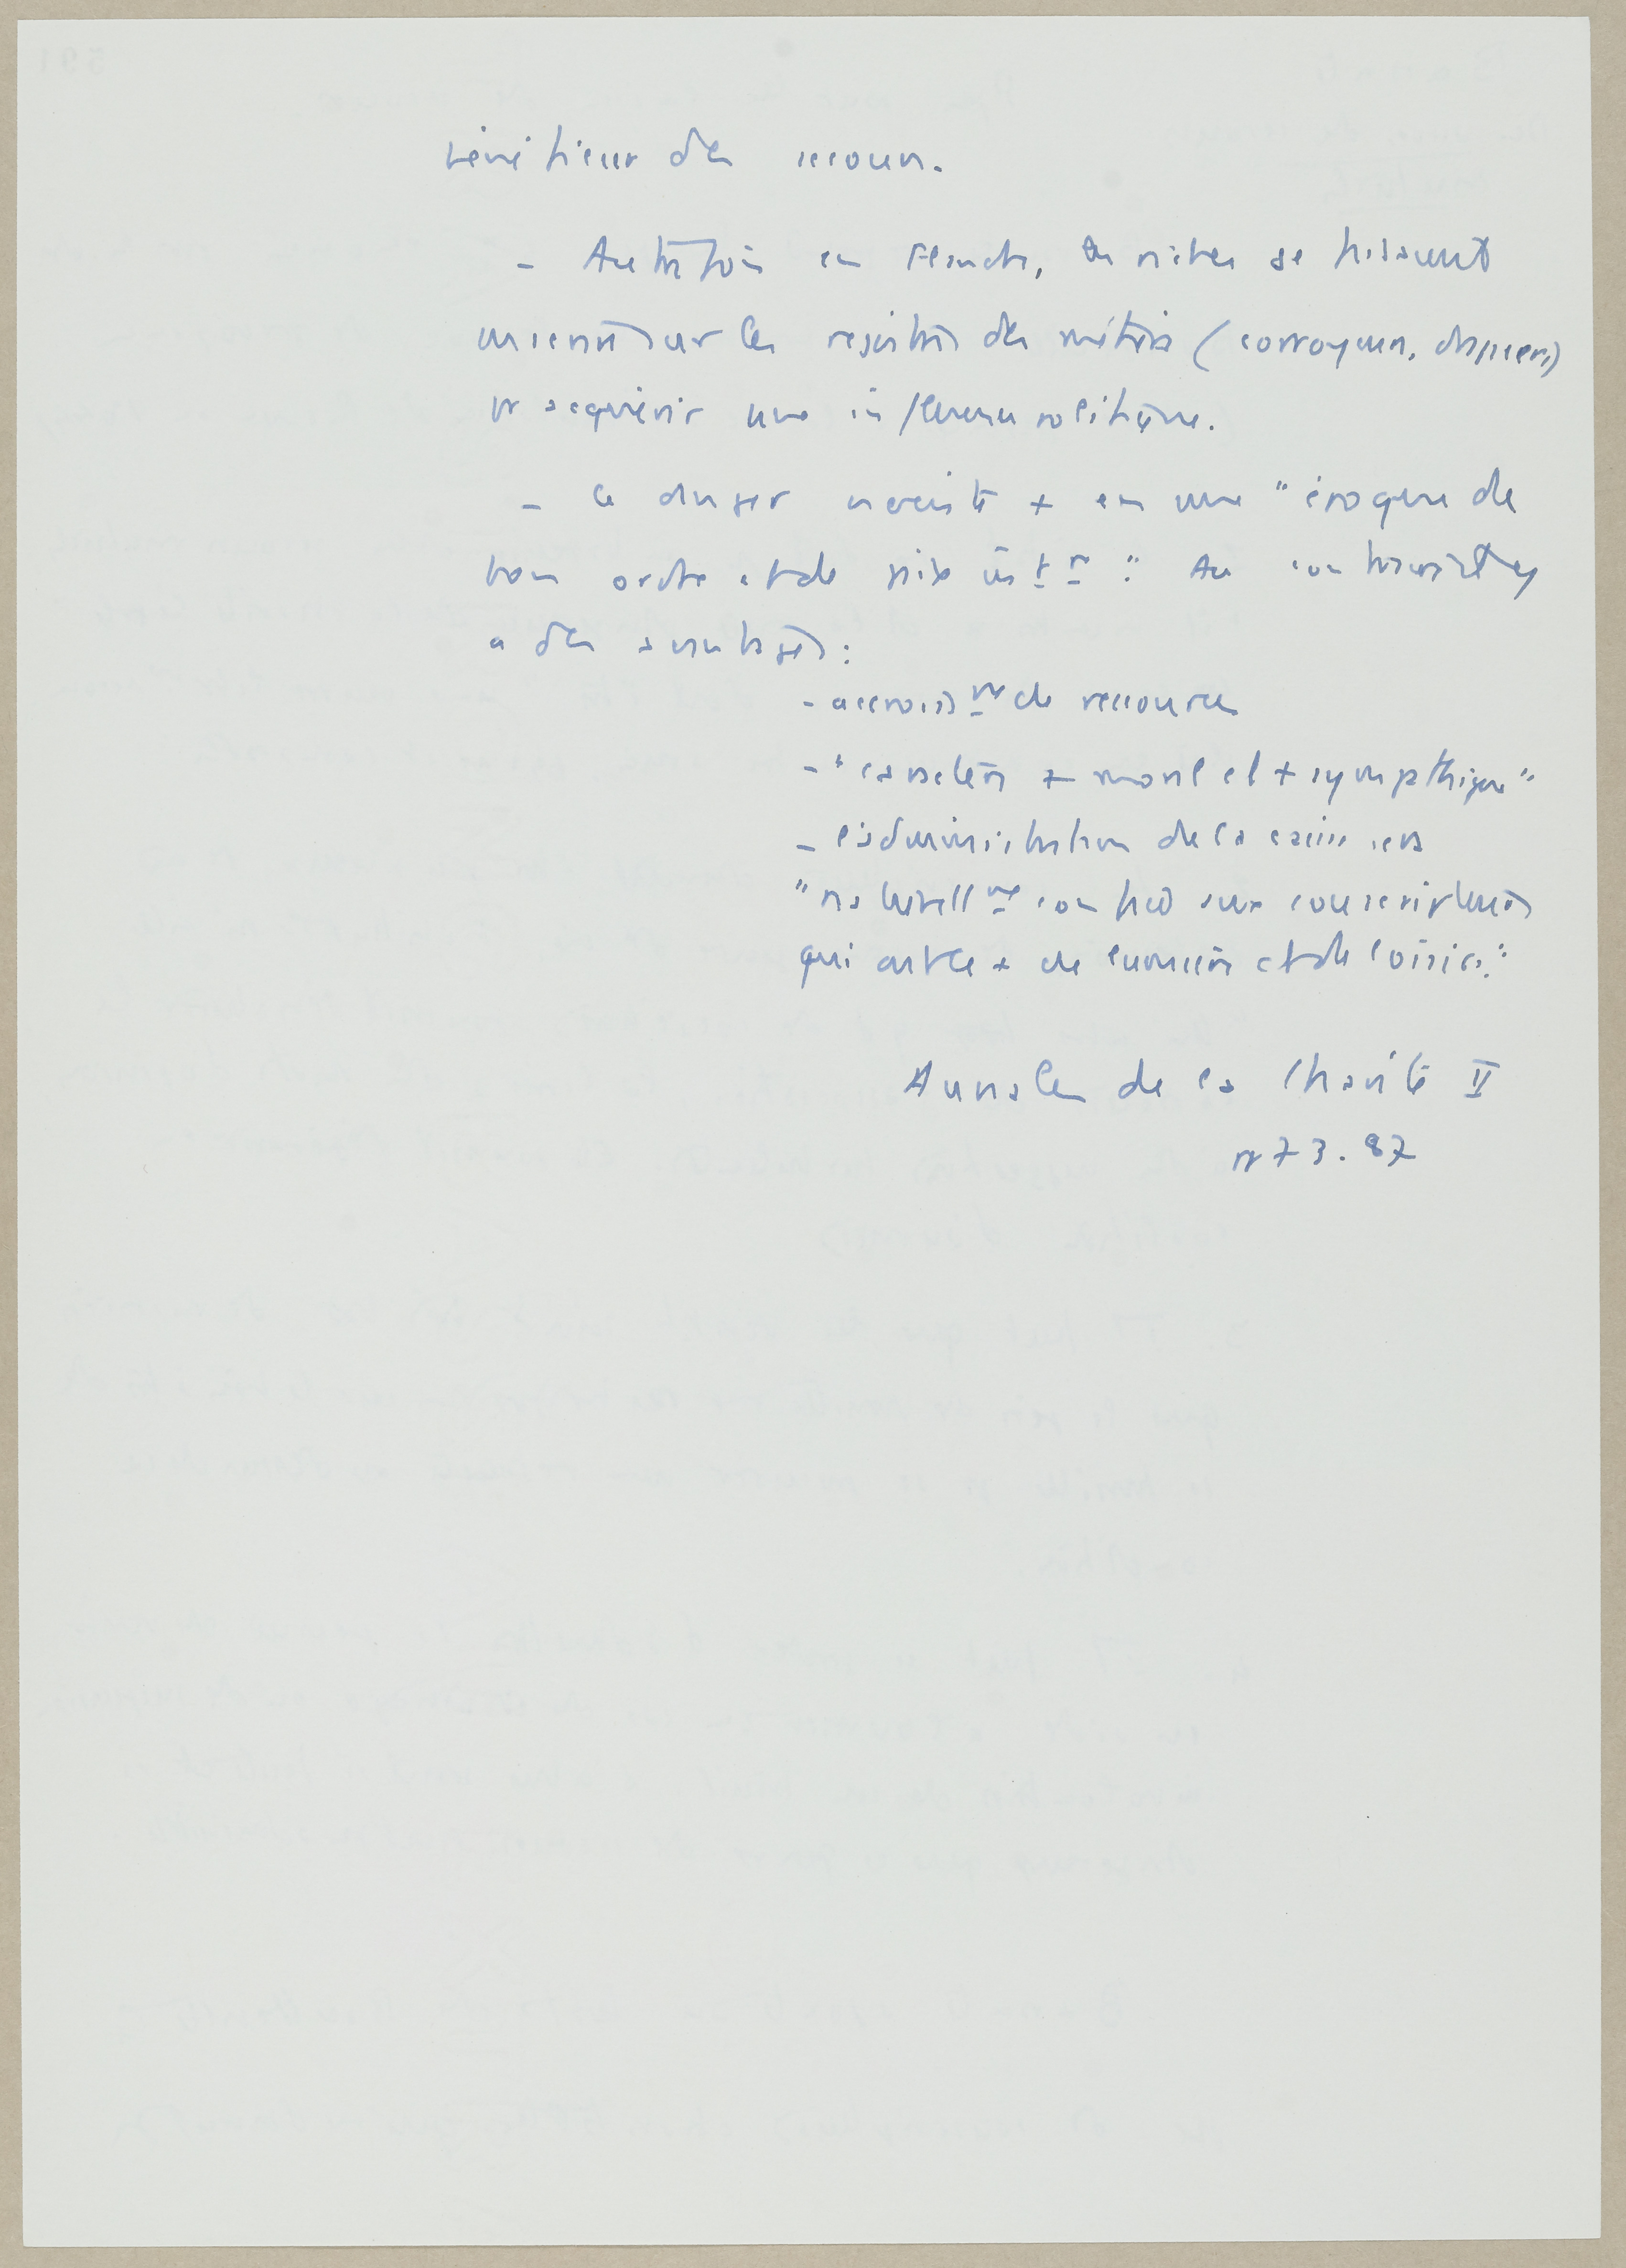 bénéficier des secours.
- Autrefois en Flandre, les riches se faisaient
inscrire sur les registres des métiers (corroyeurs, drapiers)
pr acquérir une influence politique.
- Ce danger n'existe + en une "époque de
bon ordre et de paix
Au contraire il y
a des avantages :
- accroissmt de ressources
- "caractère + moral et + sympathique"
- l'administration de la caisse sera
"naturellmt confiée aux souscripteurs
qui ont le + de lumières et de loisirs."
Annales de la Charité II
p 73.87